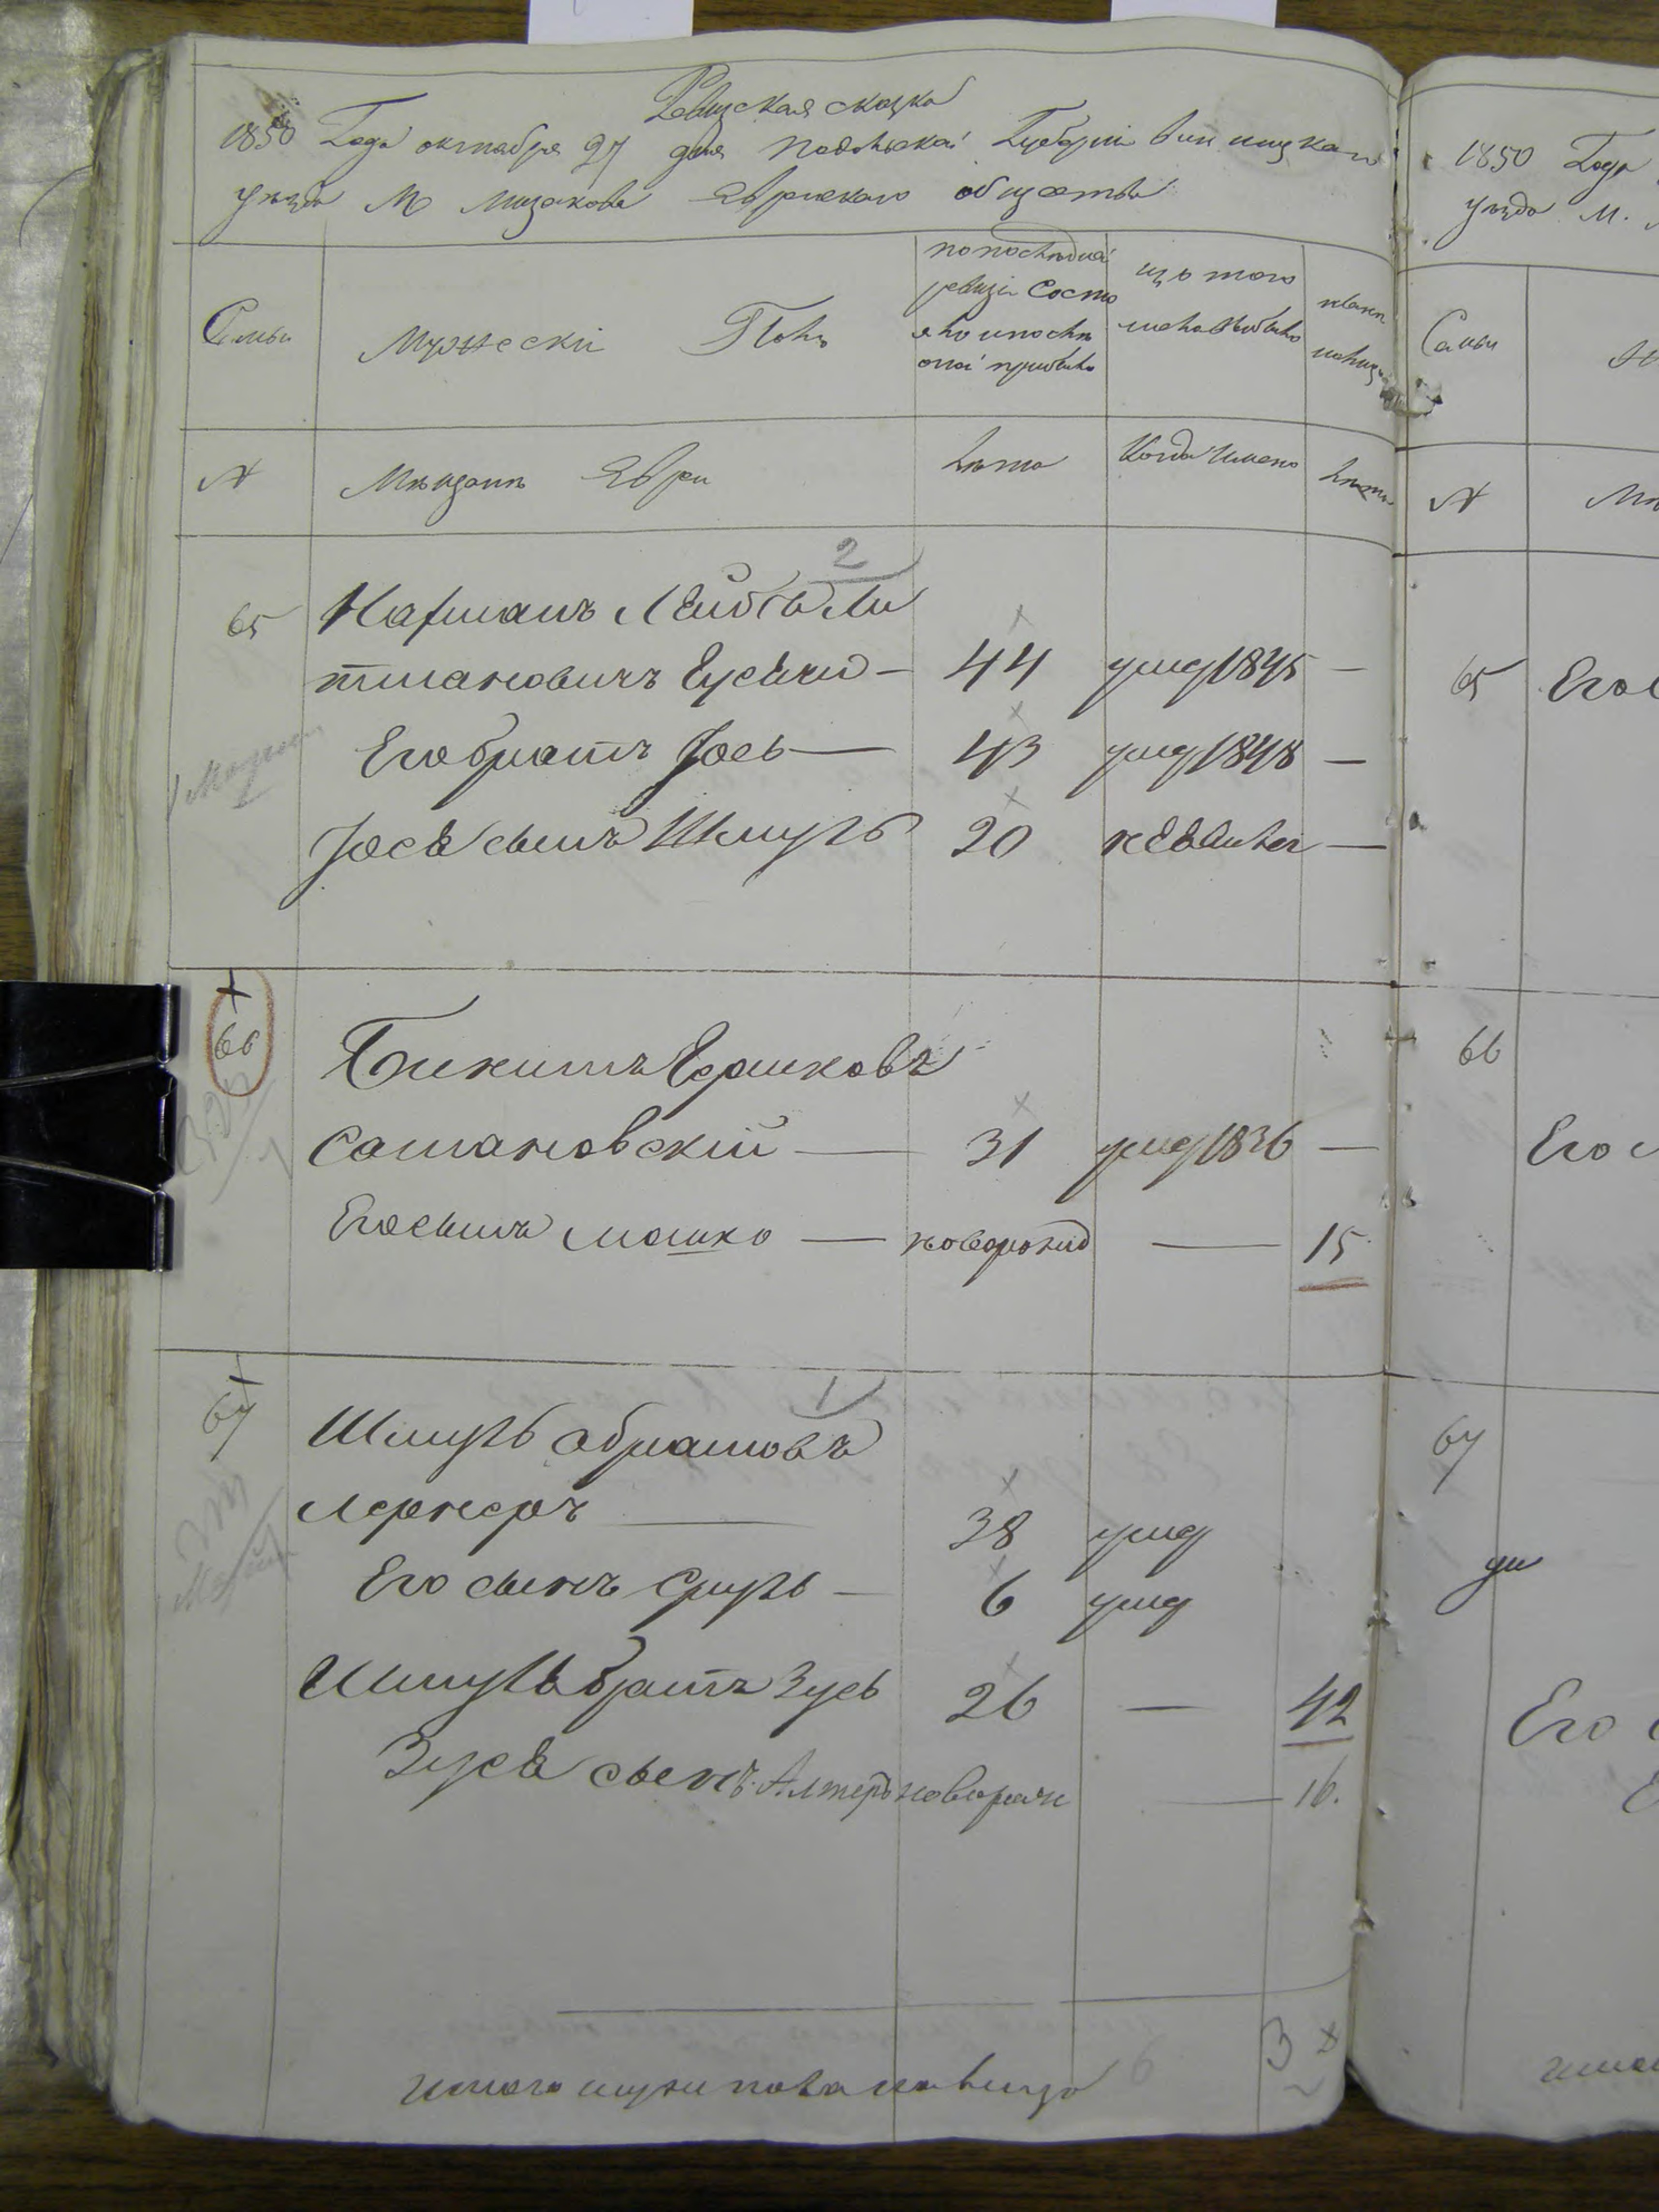 Ревизская сказка
1850 Года октября 27 дня Подольской Губерніи Винницкаго
уезда М Мизякова Еврейскаго общества
Семьи
Мужескій Полъ
по последней
ревизіи состо
яло и после
оной прибыло
изъ того
числа выбыло
ныне
налицо
№
Мещане Евреи
Лета
Когда именно
Лета
2
65
Нахманъ Лейбовъ Ли
тмановичъ
44
умер 1845 —
Его братъ Йось —
43
умер 1848 —
Йося сынъ Шмуль
20
неявился —
66
Бикимъ Ершковъ
Сатановскій —
31
умер 1836 —
Его сынъ Мошко —
новорожд —
15
67
1
Шмуль Абрамовъ
Лернеръ —
38
умер
Его сынъ Сруль —
6
умер
Шмуля братъ Зусь
26 —
42
Зуся сынъ Алтеръ
новорож —
16.
итого мужеска пола на лицо
6
3
1850 Года
уезда М.
Семьи
№
65
Его
66
Его
67
ум
Его